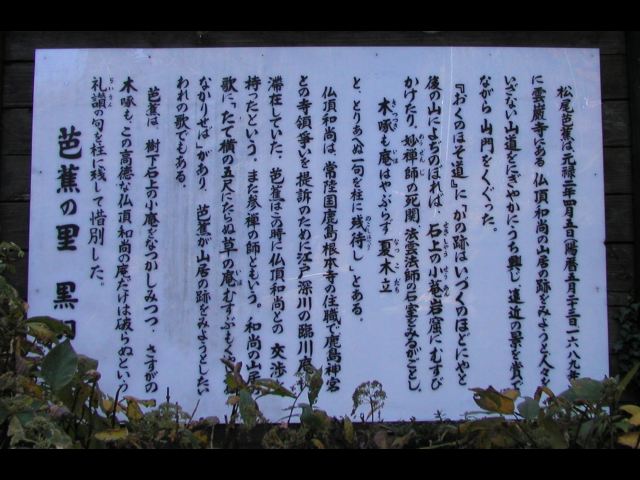 松尾芭蕉は元禄二年四月五日(陽暦五月二十三日一六八九年
に雲巌寺にある仏頂和尚の山居の跡をみようと人々
いざない山道をにぎやかにうち興じ、道辺の景を賞
ながら山門をくぐった。
『おくのほそ道』に「かの跡はいづくのほどにやと
後の山によぢのぼれば、石上の小菴岩窟にむすび
かけたり。妙禅師の死関、法雲法師の石室をみるがごとし。
木啄も庵はやぶらず夏木立
と、とりあへぬ一句を柱に残侍し」とある。
仏頂和尚は、常陸国鹿島根本寺の住職で鹿島神宮
との寺領争いを提訴のために江戸深川の臨川庵
滞在していた。芭蕉はこの時に仏頂和尚との交渉
持ったという。また参禅の師ともいう。和尚の山居
歌に、たて横の五尺にたらぬ草の庵むすぶも
なかりせば」があり、芭蕉が山居の跡をみようとしたい
われの歌でもある。
芭蕉は、樹下石上の小庵をなつかしみつつ、さすがの
木啄も、この高徳な仏頂和尚の庵だけは破らぬという
礼讃の句を柱に残して惜別した。
芭蕉の里 黒